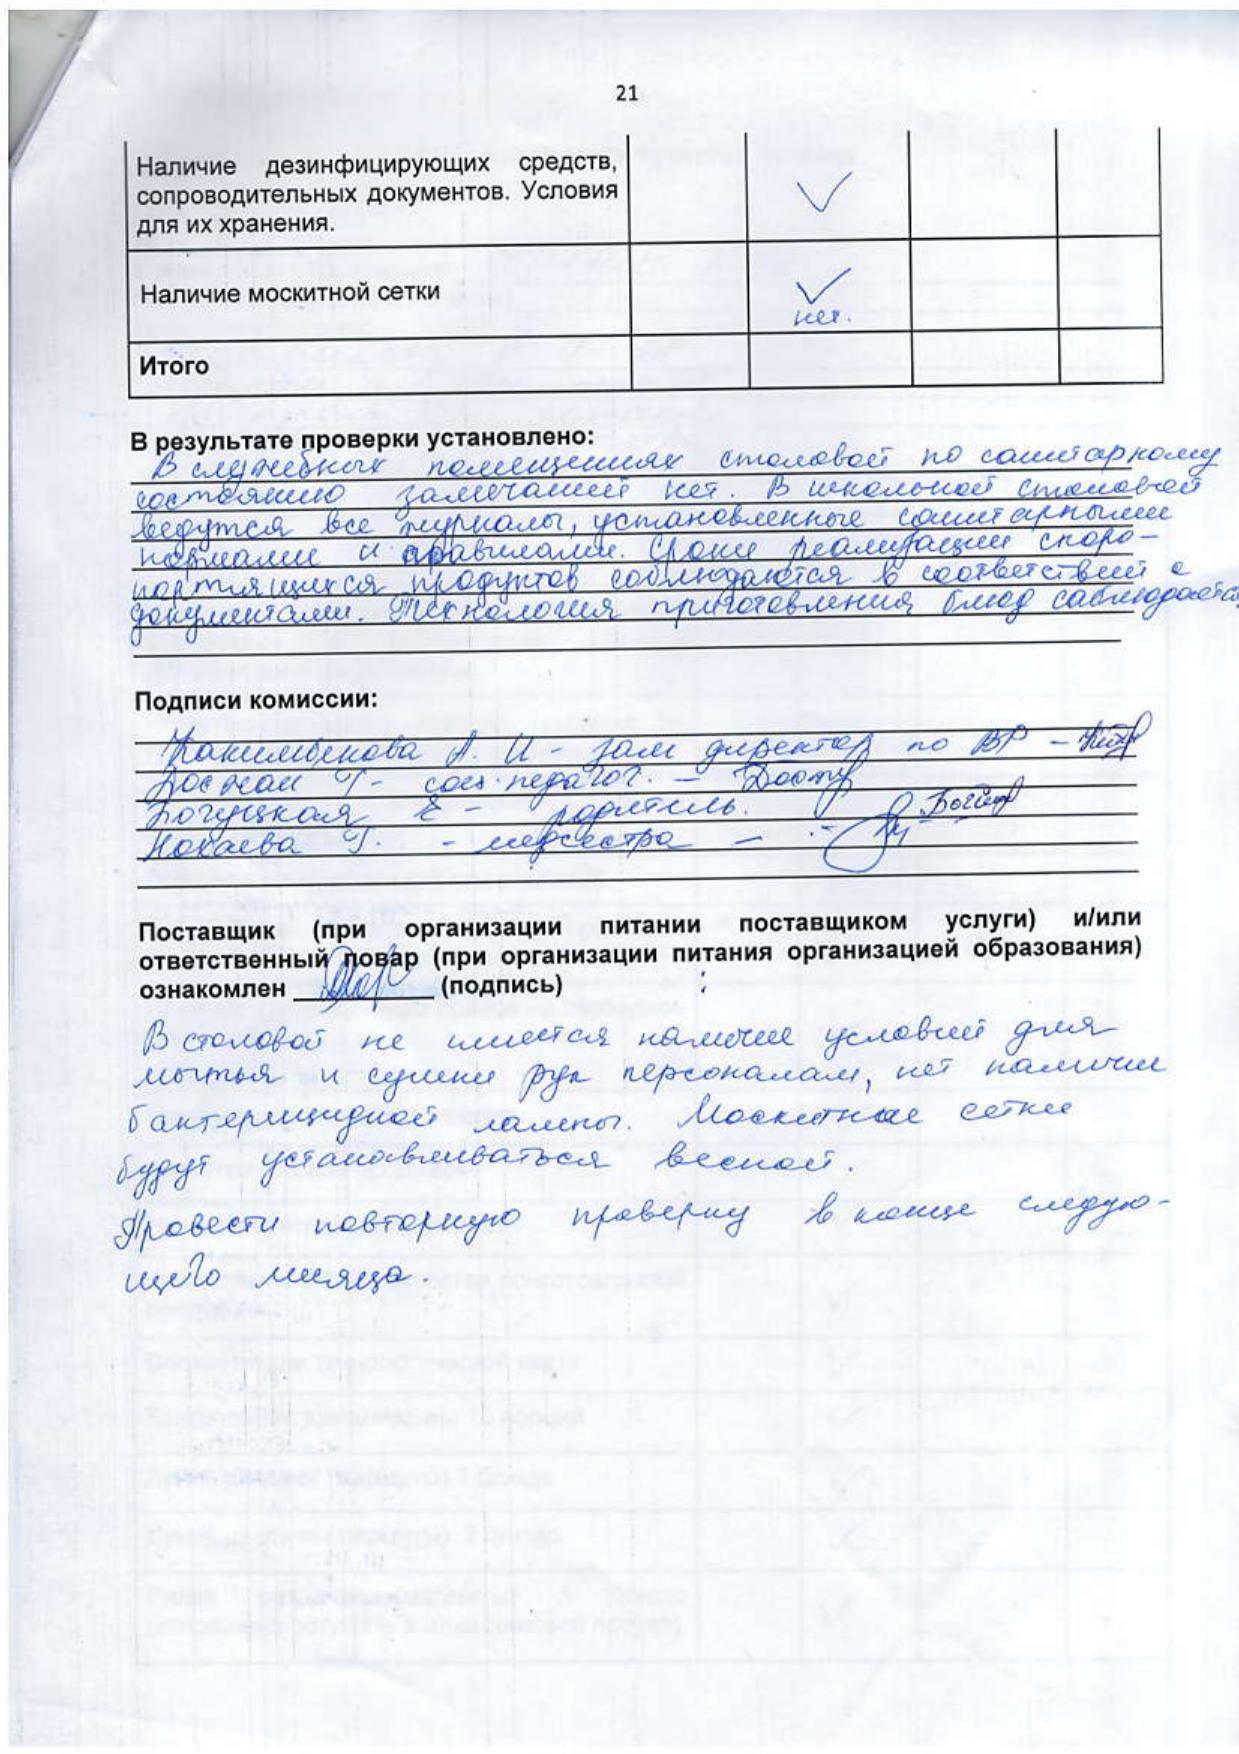 21
Наличие дезинфицирующих средств,
сопроводительных документов. Условия
для их хранения.
Наличие москитной сетки
нет.
Итого
В результате проверки установлено:
В служебных помещениях столовой по санитарному
состоянию замечаний нет. В школьной столовой
ведутся все журналы, установленные санитарными
нормами и правилами. Сроки реализации скоро-
портящихся продуктов соблюдаются в соответствий с
документами. Технология приготовления блюд саблюдается
Подписи комиссии:
А. И - зам директор по ВР -
Г - соц. педагог. -
Богуцкая Е - родитель.
Нокаева Г. - медсестра -
Поставщик (при организации питании поставщиком услуги) и/или
ответственный повар (при организации питания организацией образования)
ознакомлен (подпись)
В столовой не имеется наличие условий для
мытья и сушки рук персоналам, нет наличии
бактерицидной лампы. Москитные сетки
будут устанавливаться весной.
Провести повторную проверку в конце следую-
щего месяца.